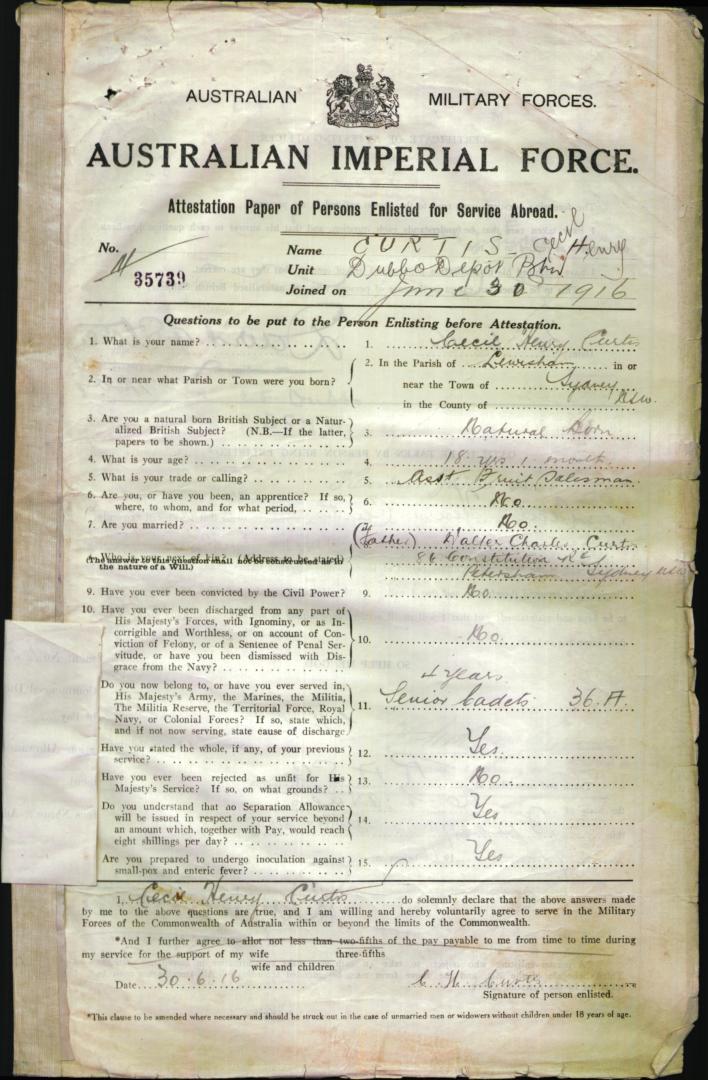 AUSTRALIAN MILITARY FORCES.
AUSTRALIAN IMPERIAL FORCE.
Attestation Paper of Persons Enlisted for Service Abroad.
No. 35739
Name CURTIS Cecil Henry
Unit Dubbo Depot Btn
Joined on June 30 1916
Questions to be put to the Person Enlisting before Attestation.
1. What is your name? 1. Cecil Henry Curtis
2. In or near what Parish or Town were you born? 2. In the Parish of Lewisham in or
near the Town of Sydney
in the County of NSW.
3. Are you a natural born British Subject or a Natur-
alized British Subject? (N.B.—If the latter,
papers to be shown.) 3. Natural Born
4. What is your age? 4. 18 yrs 1 month
5. What is your trade or calling? 5. Asst Fruit Salesman
6. Are you, or have you been, an apprentice? If so,
where, to whom, and for what period, 6. No
7. Are you married? 7. No.
8. Who is your next of kin? (Address to be stated) (Father) Walter Charles Curtis
(The answer to this question shall not be constructed as in
the nature of a Will.) 86 Constitution Rd
Petersham Sydney NSW
9. Have you ever been convicted by the Civil Power? 9. No.
10. Have you ever been discharged from any part of
His Majesty's Forces, with Ignominy, or as In-
corrigible and Worthless, or on account of Con-
viction of Felony, or of a Sentence of Penal Ser-
vitude, or have you been Dismissed with Dis-
grace from the Navy? 10. No.
Do you now belong to, or have you ever served in,
His Majesty's Army, the Marines, the Militia,
The Militia Reserve, the Territorial Force, Royal
Navy, or Colonial Forces? If so, state which,
and if not now serving, state cause of discharge 11. 4 years
Senior Cadets 36.A.
Have you stated the whole, if any, of your previous
service? 12. Yes.
Have you ever been rejected as unfit for His
Majesty's Service? If so, on what grounds? 13. No.
Do you understand that no Separation Allowance
will be issued in respect of your service beyond
an amount which, together with Pay, would reach
eight shillings per day? 14. Yes
Are you prepared to undergo inoculation against
small-pox and enteric fever? 15. Yes
I, Cecil Henry Curtis do solemnly declare that the above answers made
by me to the above questions are true, and I am willing and hereby voluntarily agree to serve in the Military
Forces of the Commonwealth of Australia within or beyond the limits of the Commonwealth.
*And I further agree to allot not less than two-fifths of the pay payable to me from time to time during
my service for the support of my wife three-fifths
wife and children
Date 30.6.16 C H Curtis
Signature of person enlisted.
*This clause to be amended where necessary and should be struck out in the case of unmarried men or widowers without children under 18 years of age.